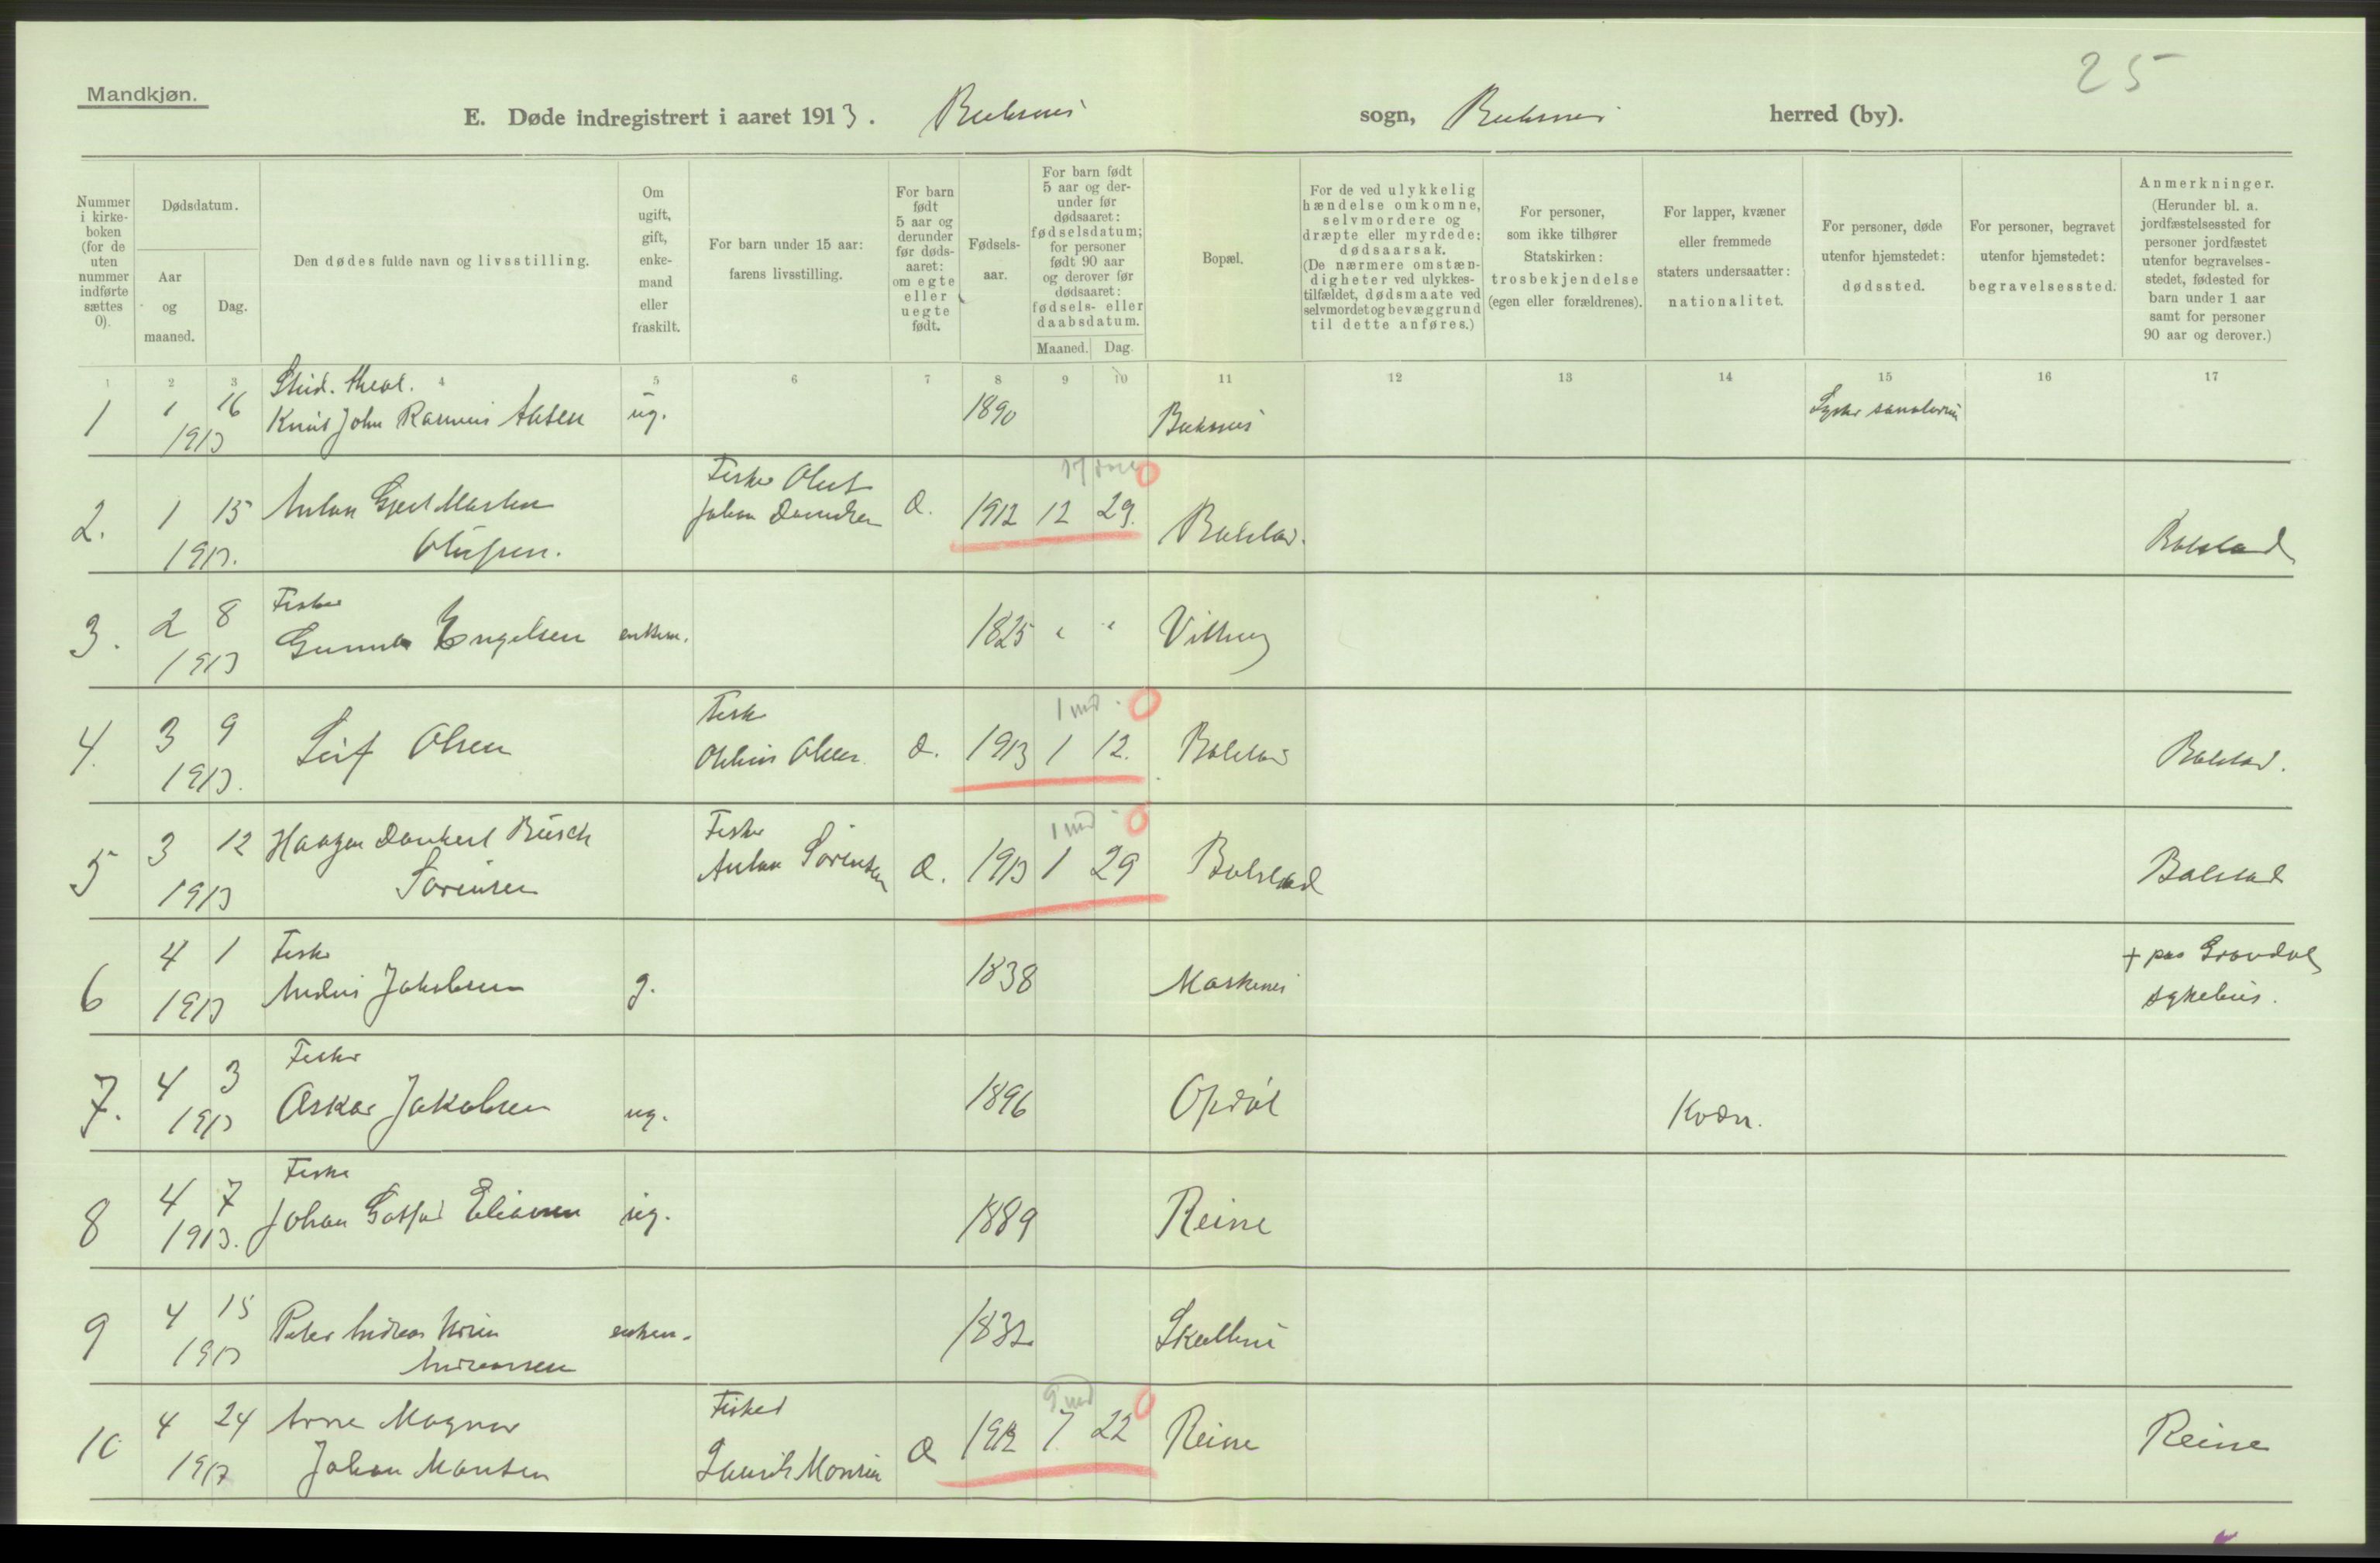 25
Mandkjøn.
E. Døde indregistrert i aaret 1913. Buksnes sogn, Buksnes herred (by).
Nummer i kirke- boken (for de uten nummer indførte sættes 0).
Dødsdatum.
Aar og maaned.
Dag.
Den dødes fulde navn og livsstilling.
Om ugift, gift, enke- mand eller fraskilt.
For barn under 15 aar: farens livsstilling.
For barn født 5 aar og derunder før døds- aaret: om egte eller uegte født.
Fødsels- aar.
For barn født 5 aar og der- under før dødsaaret: fødselsdatum; for personer født 90 aar og derover før dødsaaret: fødsels- eller daabsdatum.
Maaned. Dag.
Bopæl.
For de ved ulykkelig hændelse omkomne, selvmordere og dræpte eller myrdede: dødsaarsak. (De nærmere omstæn- digheter ved ulykkes- tilfældet, dødsmaate ved selvmordet og bevæggrund til dette anføres.)
For personer, som ikke tilhører Statskirken: trosbekjendelse (egen eller forældrenes).
For lapper, kvæner eller fremmede staters undersaatter: nationalitet.
For personer, døde utenfor hjemstedet: dødssted.
For personer, begravet utenfor hjemstedet: begravelsessted.
Anmerkninger. (Herunder bl. a. jordfæstelsessted for personer jordfæstet utenfor begravelses- stedet, fødested for barn under 1 aar samt for personer 90 aar og derover.)
1 2 3 4 5 6 7 8 9 10 11 12 13 14 15 16 17
Stud. theol.
1 1 16 Knut John Rasmus Aasen ug. 1890 Buksnes
1913
Fisker Oluf
2. 1 15 Anton Johan Æ. 1912 12 29. Balstad. Balstad
1913. Olufsen.
Fisker
3. 2 8 Engelsen enkem. 1825 " "
1913
Fisker 1 md. 0
4. 3 9 Leif Olsen Olsen Æ. 1913 1 12. Balstad Balstad.
1913.
Fisker 1 md 0
5 3 12 Haagen Dankert Busch Anton Sørensen Æ. 1913 1 29 Balstad Balstad
1913 Sørensen
Fisker
6 4 1 Jakobsen g. 1838 + paa Gravdal
1913 sykehus.
Fisker
7. 4 3 Oskar Jakobsen ug. 1896 Opdøl Kvæn.
1913
Fisker
8 4 7 Johan Eliassen ug. 1889 Reine
1913.
9 4 15 Peter Andreas enkem. 1832
1913 Andreassen
Fisker 9 md 0
10 4 24 Arne Magnar Æ 1912 7 22 Reine Reine
1913 Johan Monsen Monsen